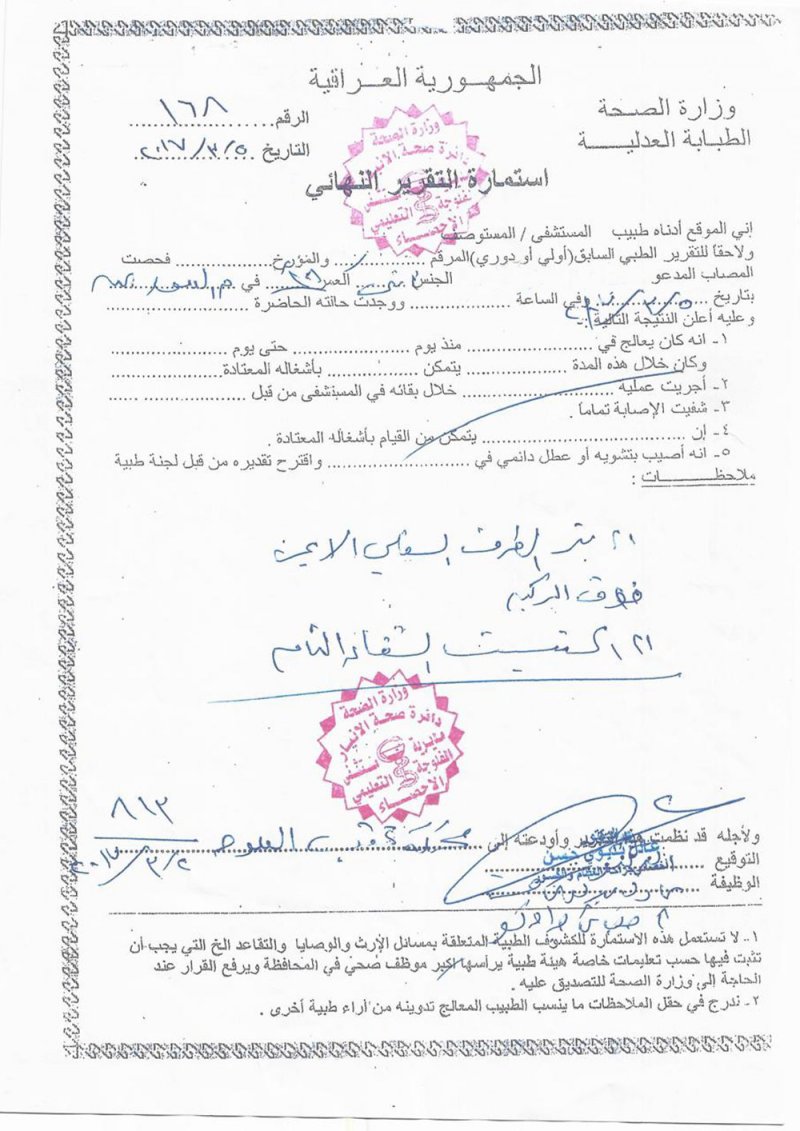 الجمهورية العراقية
وزارة الصحة
الطبابة العدلية
الرقم ١٦٨
التاريخ ٢٠١٧/٣/٥
استمارة التقرير النهائي
إني الموقع أدناه طبيب المستشفى / المستوصف
ولاحقاً للتقرير الطبي السابق(أولي أو دوري)المرقم ............ والمؤرخ ............ فحصت
المصاب المدعو الجنس العمر في
بتاريخ وفي الساعة ............ ووجدت حالته الحاضرة ............
وعليه أعلن النتيجة التالية :-
١- انه كان يعالج في ............ منذ يوم ............ حتى يوم ............
وكان خلال هذه المدة ............ يتمكن ............ بأشغاله المعتادة............
٢- أجريت عملية ............ خلال بقائه في المستشفى من قبل ............
٣- شفيت الإصابة تماماً .
٤- إن ............ يتمكن من القيام بأشغاله المعتادة .
٥- انه أصيب بتشويه أو عطل دائمي في ............ واقترح تقديره من قبل لجنة طبية
ملاحظات :
١) بتر الطرف السفلي الايمن
فوق الركبة
٢) اكتسبت الشفاء التام
وزارة الصحة
دائرة صحة الانبار
مستشفى الفلوجة التعليمي
الاحصاء
٨١٣
ولأجله قد نظمت هذا التقرير وأودعته إلى
التوقيع
الوظيفة
١- لا تستعمل هذه الاستمارة للكشوف الطبية المتعلقة بمسائل الإرث والوصايا والتقاعد الخ التي يجب أن
تثبت فيها حسب تعليمات خاصة هيئة طبية يرأسها اكبر موظف صحي في المحافظة ويرفع القرار عند
الحاجة إلى وزارة الصحة للتصديق عليه .
٢- ندرج في حقل الملاحظات ما ينسب الطبيب المعالج تدوينه من أراء طبية أخرى .